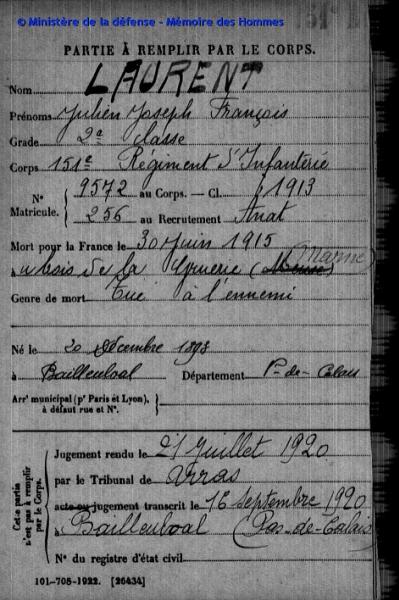 © Ministère de la défense - Mémoire des Hommes
PARTIE À REMPLIR PAR LE CORPS.
Nom LAURENT
Prénoms Julien Joseph François
Grade 2e classe
Corps 151e Régiment d'Infanterie
N° Matricule. { 9572 au Corps. — Cl. 1913
256 au Recrutement
Mort pour la France le 30 Juin 1915
à bois de la Gruerie (Meuse) Marne)
Genre de mort Tué à l'ennemi
Né le 20 Décembre
à Bailleulval Département Ps-de-Calais
Arrt municipal (pr Paris et Lyon), à défaut rue et N°.
Cette partie n'est pas à remplir par le Corps.
Jugement rendu le 21 Juillet 1920
par le Tribunal de Arras
acte ou jugement transcrit le 16 Septembre 1920
à Bailleulval (Pas-de-Calais)
N° du registre d'état civil
101-708-1922. [26434]